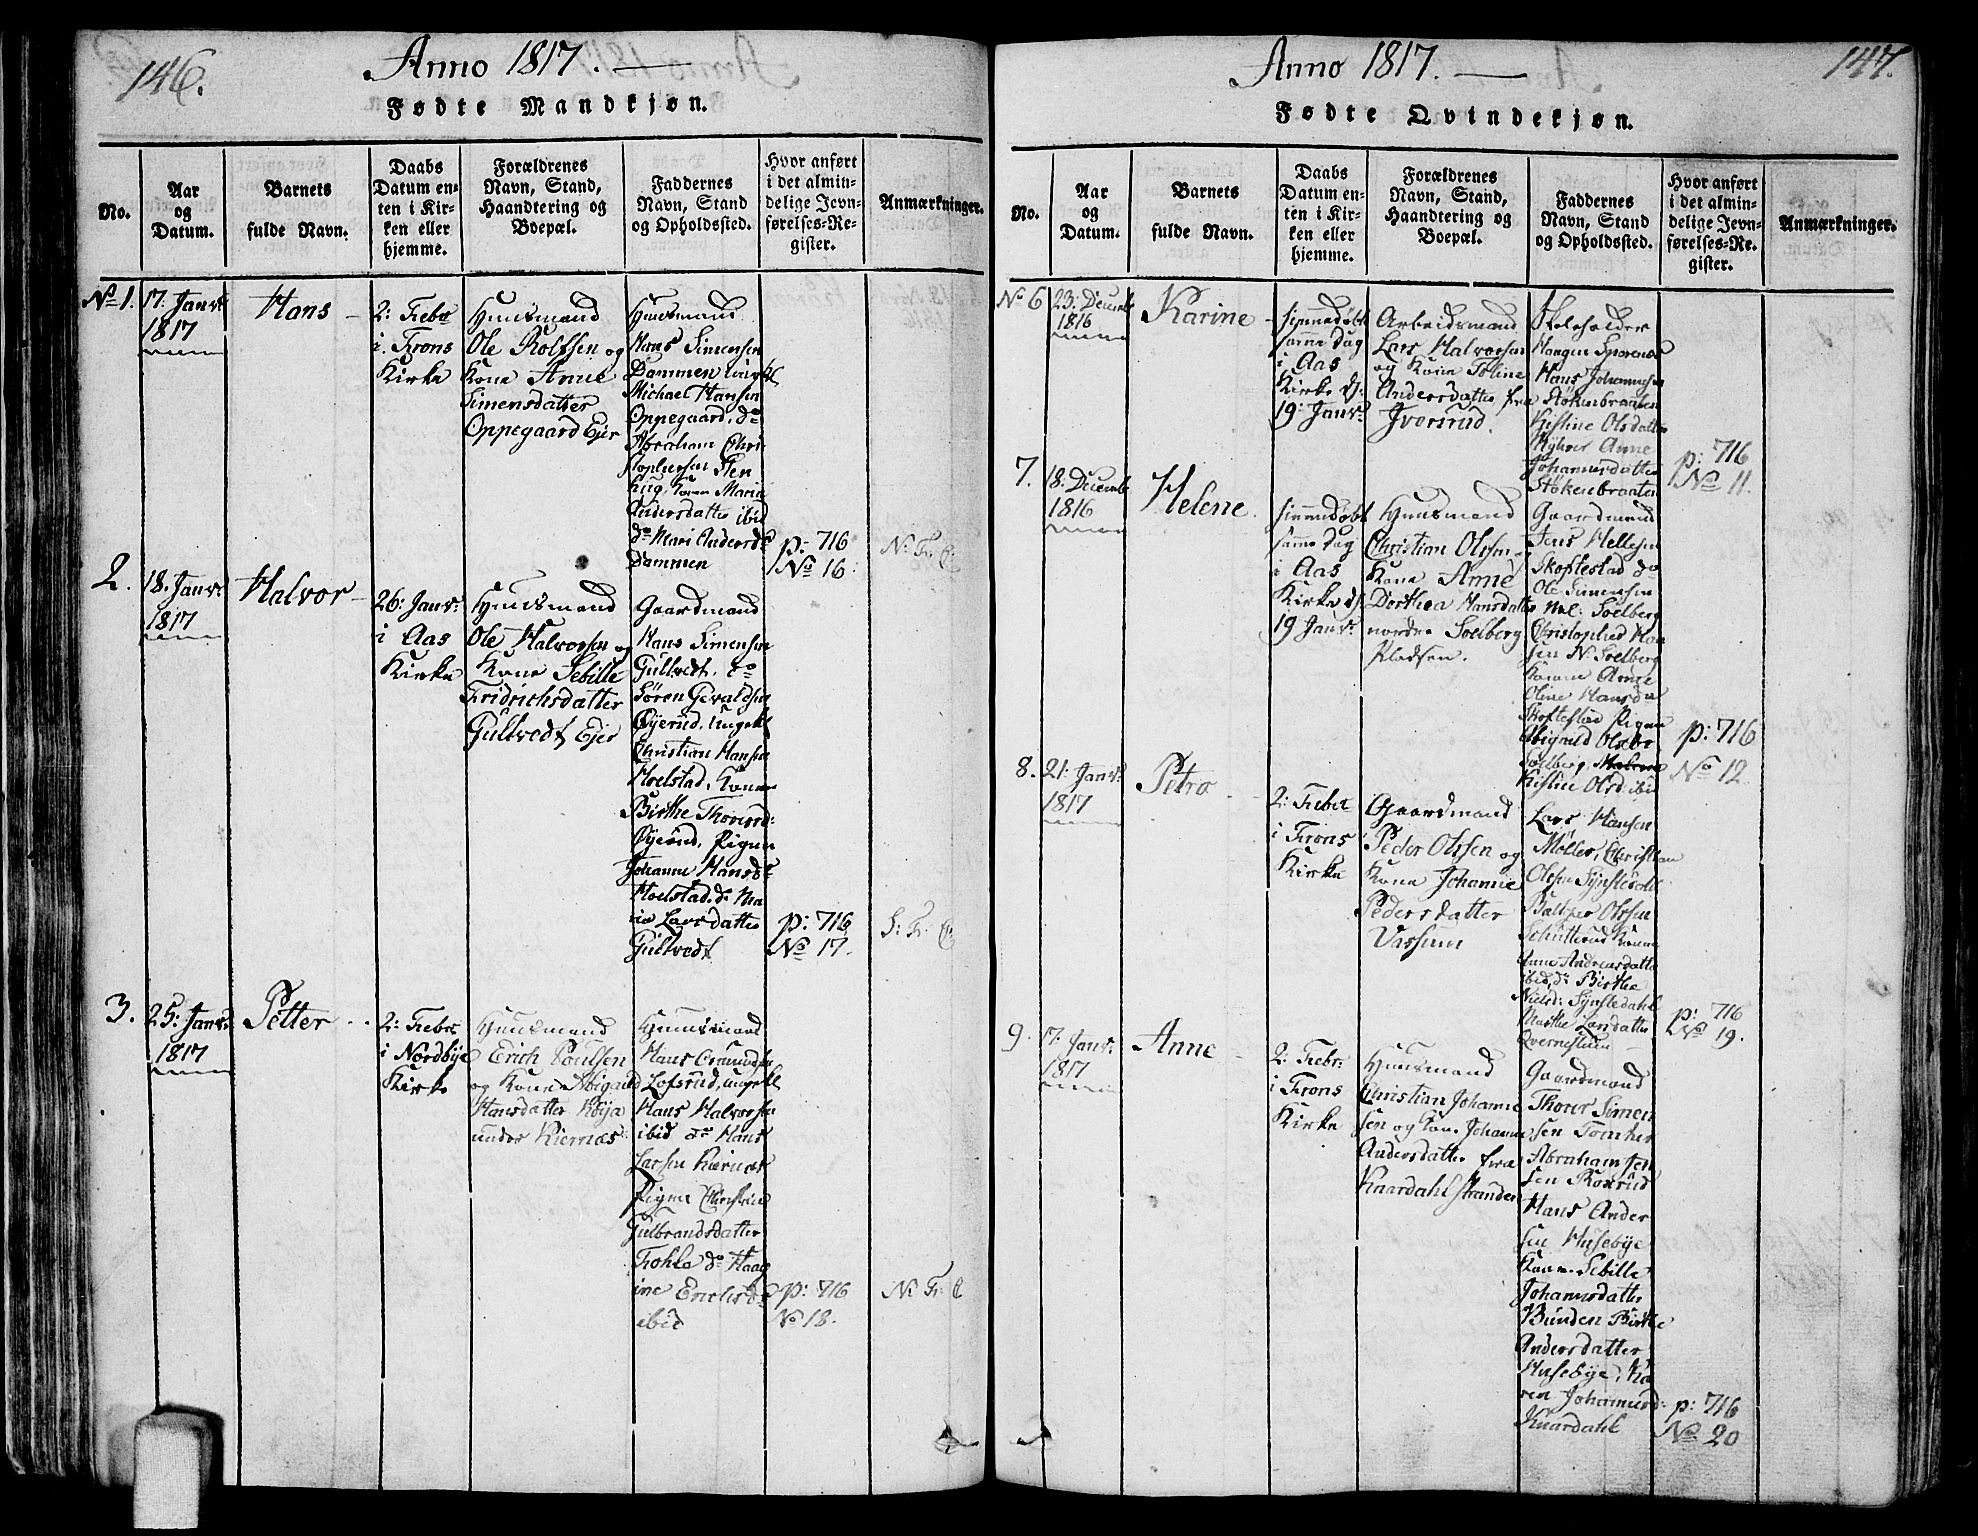 146.
Anno 1817.
Fødte Mandkjøn.
No.
Aar
og
Datum.
Barnets
fulde Navn.
Daabs
Datum en-
ten i Kir-
ken eller
hjemme.
Forældrenes
Navn, Stand,
Haandtering og
Boepæl.
Faddernes
Navn, Stand
og Opholdssted.
Hvor anført
i det almin-
delige Jevn-
førelses-Re-
gister.
Anmærkninger.
No 1.
17: Janv:
1817
Hans
2: Febr
i Frons
Kirke
Huusmand
Ole Rolfsen og
Kone Anne
Simensdatter
Oppegaard Ejer
Huusmand
Hans Simensen
Dammen
Michael Hansen
Oppegaard, do
Abraham Chri-
stophersen
Maria
Andersdatter ibid
do Mari Andersd:
Dammen
p: 716
No 16.
N: Fr: C
2.
18: Janv:
1817
Halvor
26: Janv:
i Aas
Kirke
Huusmand
Ole Halvorsen og
Kone Sebille
Fridrichsdatter
Gultvedt Ejer
Gaardmand
Hans Simensen
Gultvedt, do
Søren Gevaldsen
Øjerud, Ungekl
Christian Hansen
Hoelstad, Konen
Birthe Thoresd:
Øjerud, Pigen
Johanne Hansd:
Hoelstad, do Ma
rie Larsdatter
Gultvedt
p: 716
No 17.
S: Fr: C
3.
25: Janv:
1817
Petter
2: Febr:
i Nordbye
Kirke
Huusmand
Erich Poulsen
og Kone Abigael
Hansdatter Køija
under Kiernæs
Huusmand
Hans Amundsen
Lofsrud, ungekl
Hans Halvorsen
ibid do Hans
Larsen Kærnæs
Pigen Christine
Gulbrandsdatter
Frohle do Haag
ine Erichsd:
ibid
p: 716
No 18.
N: Fr: C
147.
Anno 1817.
Fødte Qvindekjøn.
No.
Aar
og
Datum.
Barnets
fulde Navn.
Daabs
Datum en-
ten i Kir-
ken eller
hjemme.
Forældrenes
Navn, Stand,
Haandtering og
Boepæl.
Faddernes
Navn, Stand
og Opholdssted.
Hvor anført
i det almin-
delige Jevn-
førelses-Re-
gister.
Anmærkninger.
No 6
23: Decemb
1816
Karine
hjemmedøbt
samme dag
i Aas
Kirke d:
19: Janv:
Arbeidsmand
Lars Halvorsen
og Kone Toline
Andersdatter fra
Iversrud.
Skoleholder
Haagen
Hans Johannesen
Støkenbraaten
Kjestine Olsdatter
Anne
Johannesdatter
Støkenbraaten
p: 716
No 11.
7.
18: Decemb
1816
Helene
hjemmedøbt
samme dag
i Aas
Kirke d:
19 Janv:
Huusmand
Christian Olssen,
Kone Anne
Dorthea Hansdatter
nordre Soelberg
Pladsen.
Gaardmand
Jens Hellesen
Skoftestad do
Ole Simensen
Soelberg
Christopher Han
sen N: Soelberg
Konen Anne
Oline Hansd:
Skoftestad Pigen
Abigael Olsdr
Soelberg,
Kistine Olsd: ibid
p: 716
No 12.
8.
21: Janv:
1817
Petra
2: Febr
i Frons
Kirke
Gaardmand
Peder Olssen og
Kone Johanne
Pedersdatter
Vassum
Lars Hansen
Møller, Christian
Olssen Synstedahl
Baltzer Olssen
Schutterud Konen
Anne Andreasdatter
ibid, do Birthe
Nielsd: Synstedahl
Marthe Larsdatter
Qvernstuen
p: 716
No 19.
9.
17: Janv:
1817
Anne
2: Febr:
i Frons
Kirke
Huusmand
Christian Johanne
sen og Kone Johanne
Andersdatter fra
Knardahl stranden
Gaardmand
Thorer Simen
sen
Abraham Jen
sen
Hans Ander
sen Husebye
Konen Sebille
Johannesdatter
Bunden Birthe
Andersdatter
Husebye, Ka
ren Johannesd:
Knardahl
p: 716
No 20